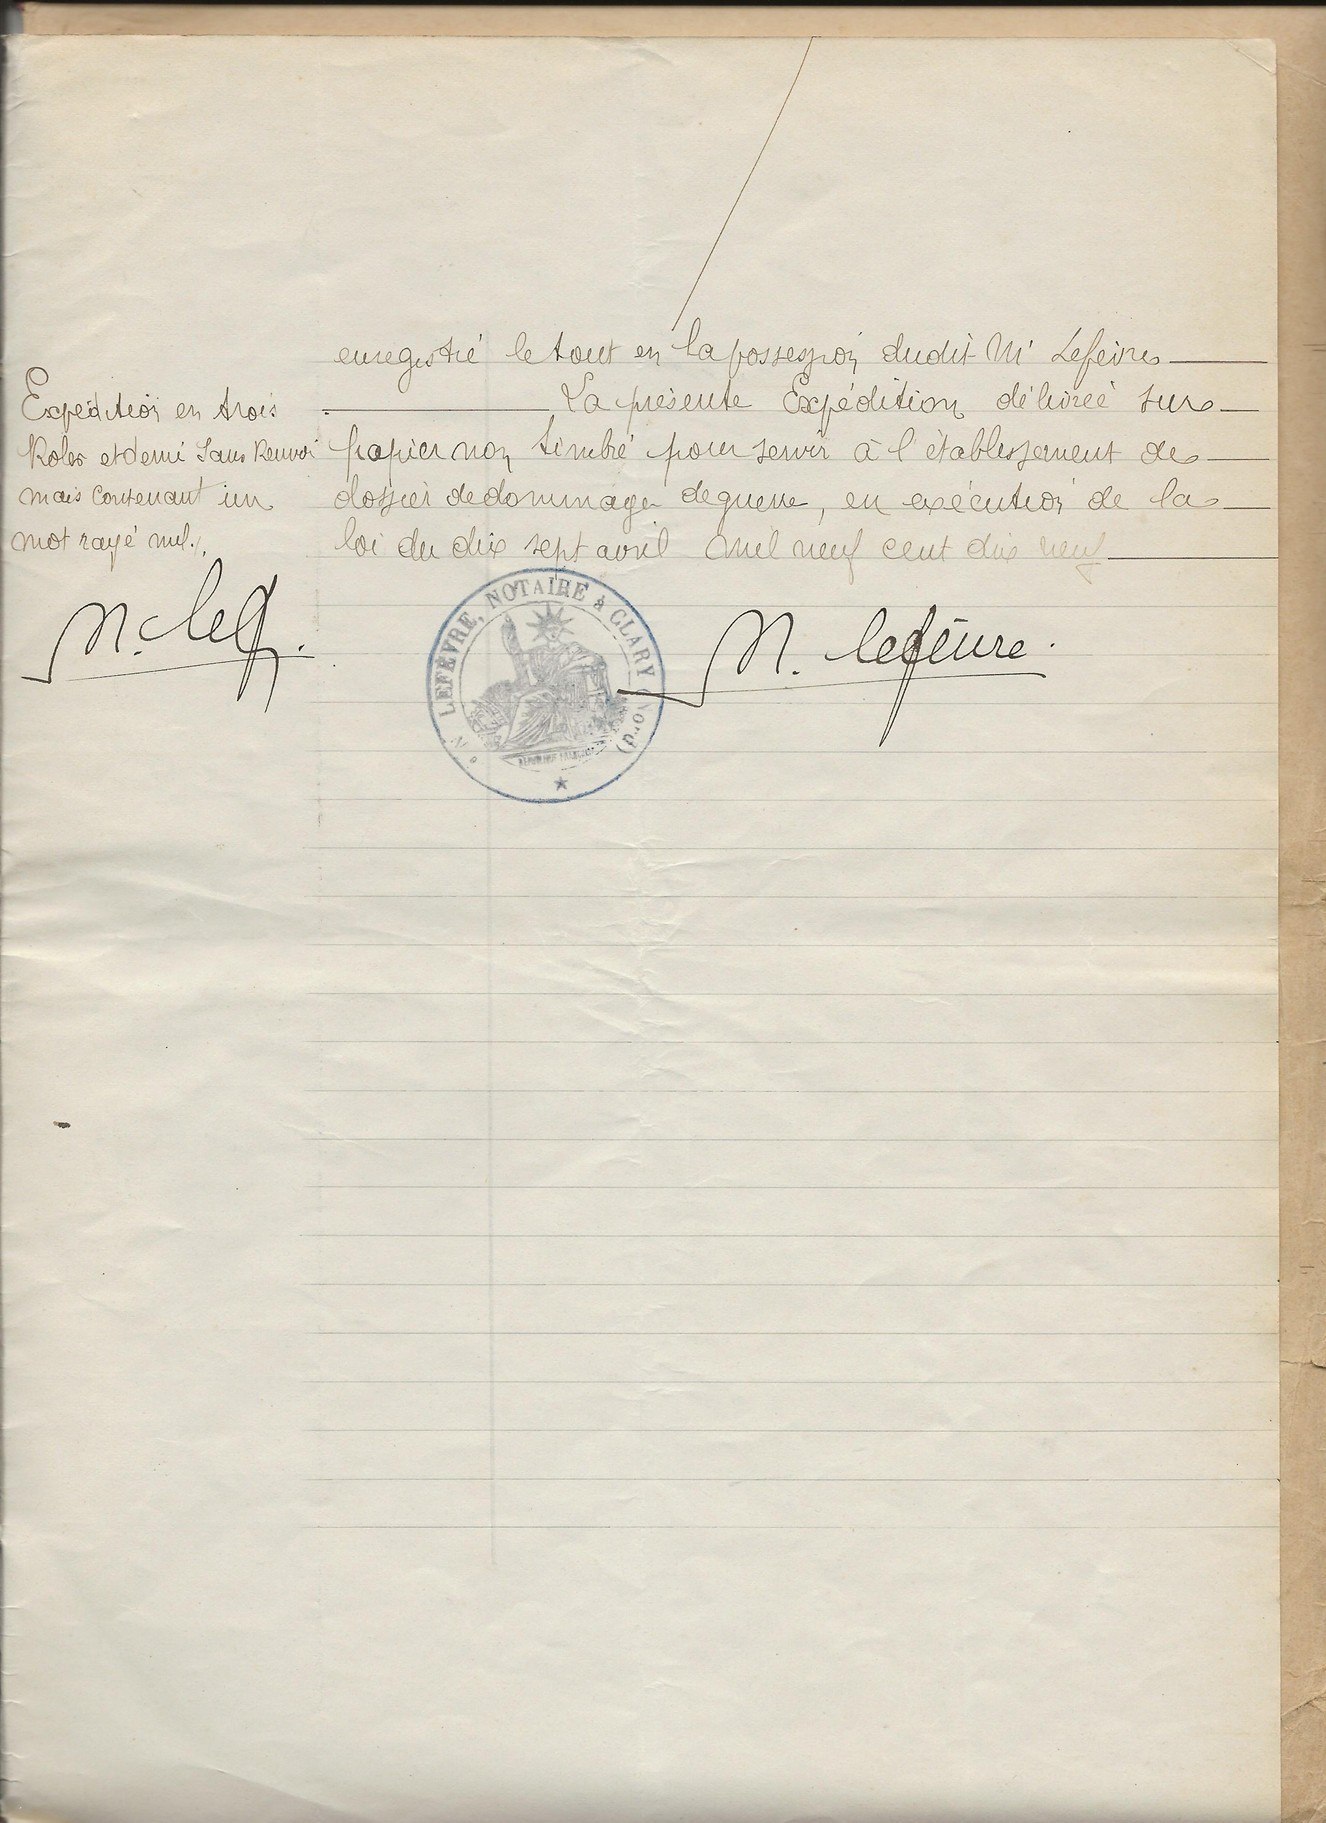 enregistré le tout en la possession dudit Me Lefèvre
La présente Expédition délivrée sur
papier non timbré pour servir à l'établissement de
dossier de dommage de guerre, en exécution de la
loi du dix sept avril mil neuf cent dix neuf
Expédition en trois
Roles et demi Sans Renvoi
mais contenant un
mot rayé nul.
N. Lef
N. Lefèvre.
N. LEFÈVRE, NOTAIRE à CLARY (Nord)
RÉPUBLIQUE FRANÇAISE